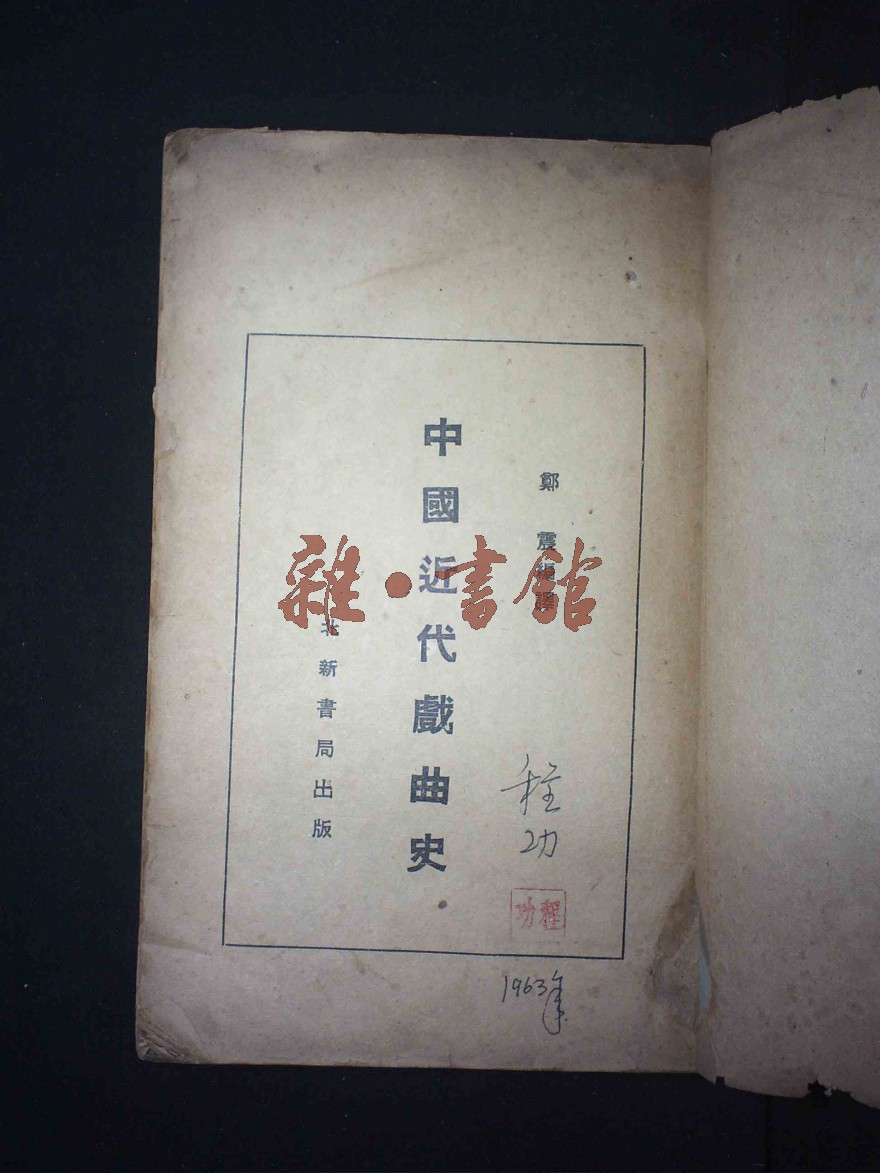 鄭震編譯
中國近代戲曲史
北新書局出版
程功
程功
1963年
雜·書館